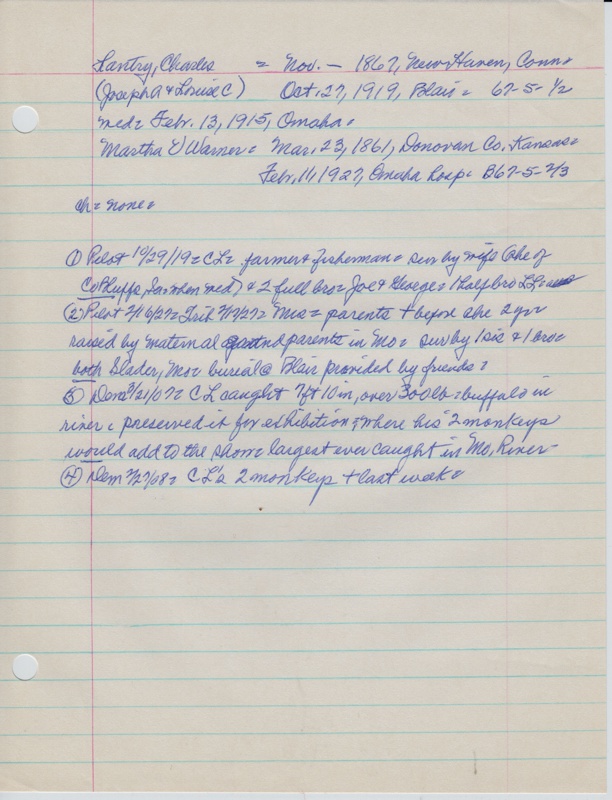 Lantry, Charles = Nov. — 1867, New Haven, Conn=
(Joseph A & Louise C) Oct. 27, 1919, Blair= 67-5-1/2
med= Febr. 13, 1915, Omaha=
Martha V Warner= Mar. 23, 1861, Donovan Co, Kansas=
Febr. 11, 1927, Omaha Hosp= B67-5-2/3
ch= none=
① Pilot 10/29/19= CL= farmer & fisherman= sur by wife (she of
Co Bluffs, Ia when med) & 2 full bro= Joe & George= 1 half bro
② Pilot 2/16/27= Trib 2/17/27= Mrs= parents + before she 2 yr
raised by maternal grandparents in Mo= sur by 1 sis & 1 bro=
both Slader, Mo= burial @ Blair provided by friends=
③ Dem 3/21/07= CL caught 7ft 10in, over 300lb= buffalo in
river= preserved it for exhibition= where his 2 monkeys
would add to the show= largest ever caught in Mo, River-
④ Dem 2/27/08= CL's 2 monkeys + last week=